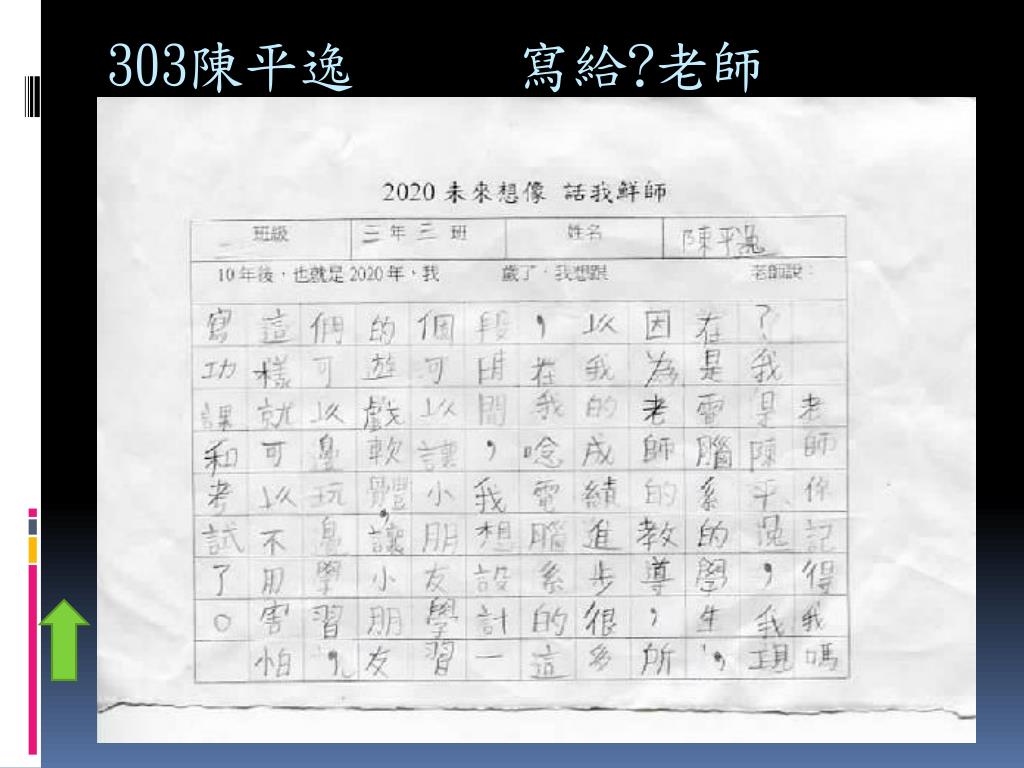 303陳平逸 寫給?老師
2020 未來想像 話我鮮師
班級 三年三班 姓名 陳平逸
10年後,也就是2020年,我 歲了,我想跟 老師說:
老師你記得我嗎
?我是陳平逸,我現
在是電腦系的學生,
因為老師的教導,所
以我的成績進步很多
,在我唸電腦系的這
段時間,我想設計一
個可以讓小朋友學習
的遊戲軟體,讓小朋友
們可以邊玩邊學習,
這樣就可以不用害怕
寫功課和考試了。